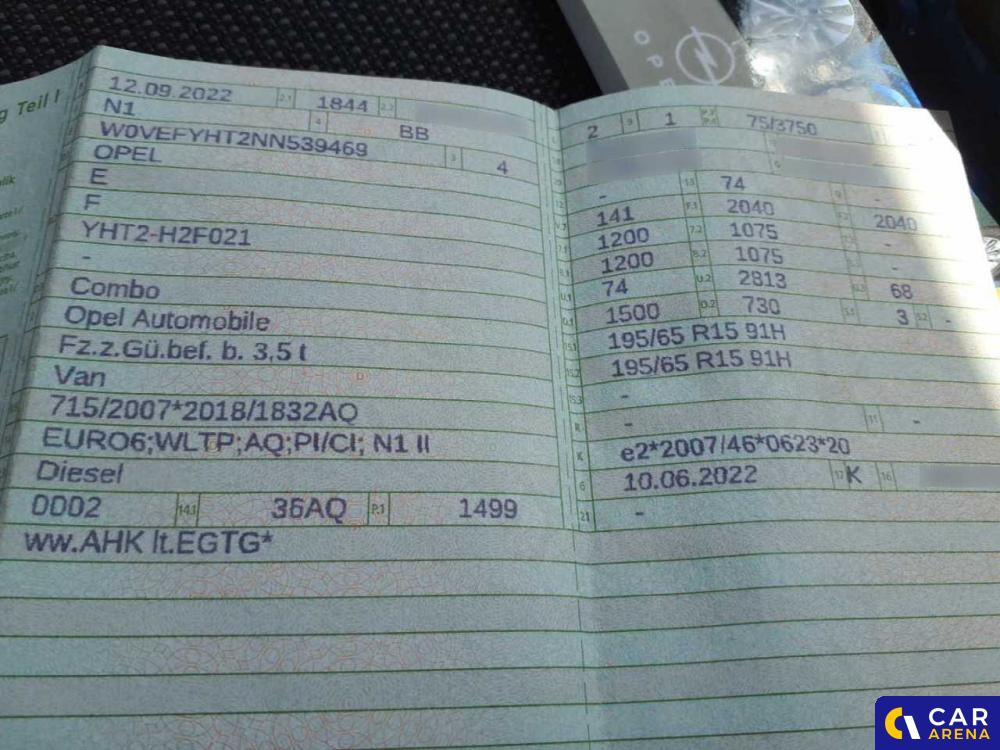 g Teil I
12.09.2022 2.1 1844 2.2
N1 4 BB
W0VEFYHT2NN539469 3 4
OPEL
E
F
YHT2-H2F021
-
Combo
Opel Automobile
Fz.z.Gü.bef. b. 3,5 t
Van
715/2007*2018/1832AQ
EURO6;WLTP;AQ;PI/CI; N1 II
Diesel
0002 14.1 36AQ P.1 1499
ww.AHK lt.EGTG*
2 9 1 P.2 P.4 75/3750
- 13 74 -
141 F.1 2040 F.2 2040
1200 7.2 1075 -
1200 8.2 1075 -
74 U.2 2813 U.3 68
1500 O.2 730 S.1 3 S.2 -
195/65 R15 91H
195/65 R15 91H
-
R - 11 -
K e2*2007/46*0623*20
6 10.06.2022 17 K 16
21 -
OPE
CAR
ARENA